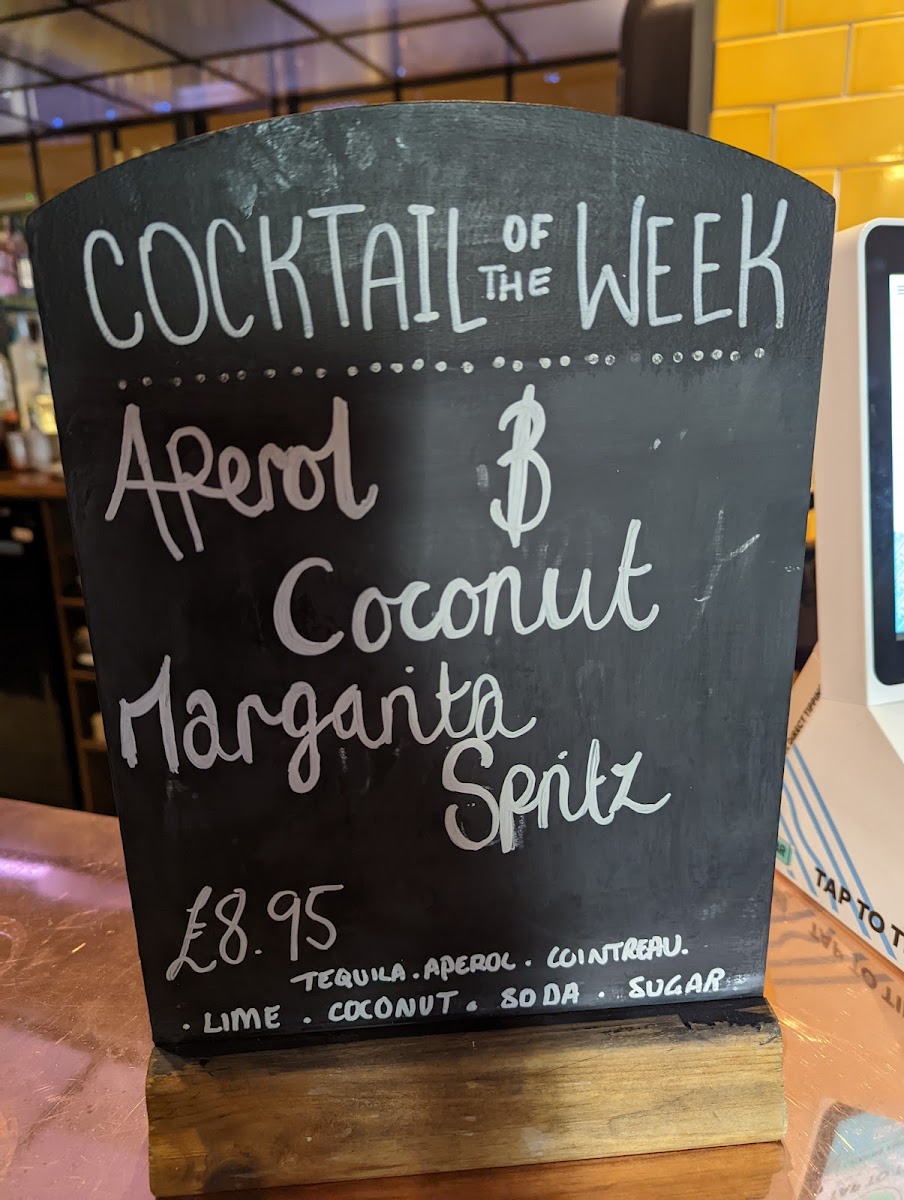 COCKTAIL OF THE WEEK
Aperol &
Coconut
Margarita
Spritz
£8.95
TEQUILA . APEROL . COINTREAU.
. LIME . COCONUT . SODA . SUGAR
TAP TO T